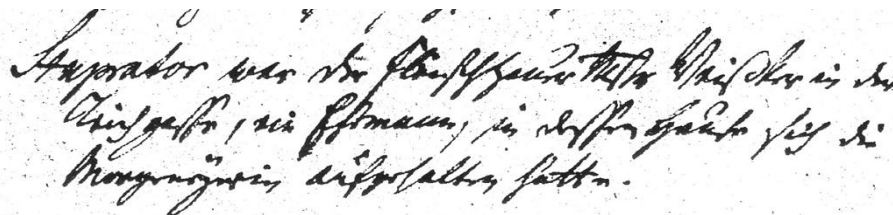 Stuprator war der Fleischhauer Mstr Weißker in der
Teichgasse, ein Ehemann, in dessen Hause sich die
aufgehalten hatte.